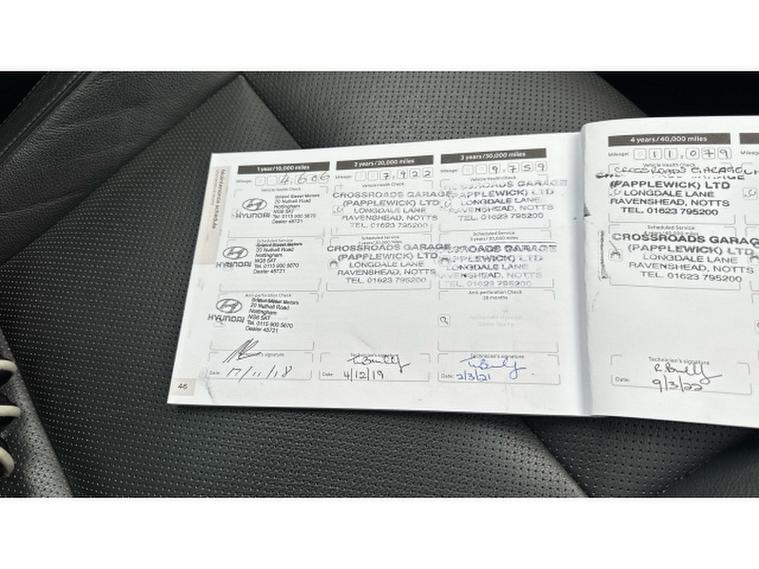 Maintenance schedule
1 year/10,000 miles
Mileage: 4,606
Vehicle Health Check
HYUNDAI
Bristol Street Motors
20 Nuthall Road
Nottingham
NG8 5AT
Tel. 0115 900 5670
Dealer 45721
Scheduled Service
Bristol Street Motors
20 Nuthall Road
Nottingham
NG8 5AT
Tel. 0115 900 5670
Dealer 45721
HYUNDAI
Anti-perforation Check
Bristol Street Motors
20 Nuthall Road
Nottingham
NG8 5AT
Tel. 0115 900 5670
Dealer 45721
HYUNDAI
Technician's signature
Date: 17/11/18
46
2 years/20,000 miles
Mileage: 7,922
Vehicle Health Check
CROSSROADS GARAGE
(PAPPLEWICK) LTD
LONGDALE LANE
RAVENSHEAD, NOTTS
TEL. 01623 795200
Scheduled Service
2 years/20,000 miles
CROSSROADS GARAGE
(PAPPLEWICK) LTD
LONGDALE LANE
RAVENSHEAD, NOTTS
TEL. 01623 795200
Technician's signature
Date: 4/12/19
3 years/30,000 miles
Mileage: 9,759
Vehicle Health Check
CROSSROADS GARAGE
(PAPPLEWICK) LTD
LONGDALE LANE
RAVENSHEAD, NOTTS
TEL. 01623 795200
Scheduled Service
3 years/30,000 miles
CROSSROADS GARAGE
(PAPPLEWICK) LTD
LONGDALE LANE
RAVENSHEAD, NOTTS
TEL. 01623 795200
Anti-perforation Check
36 months
Technician's signature
Date: 2/3/21
4 years/40,000 miles
Mileage: 11,079
Vehicle Health Check
CROSSROADS GARAGE
(PAPPLEWICK) LTD
LONGDALE LANE
RAVENSHEAD, NOTTS
TEL. 01623 795200
Scheduled Service
4 years/40,000 miles
CROSSROADS GARAGE
(PAPPLEWICK) LTD
LONGDALE LANE
RAVENSHEAD, NOTTS
TEL. 01623 795200
Technician's signature
Date: 9/3/22